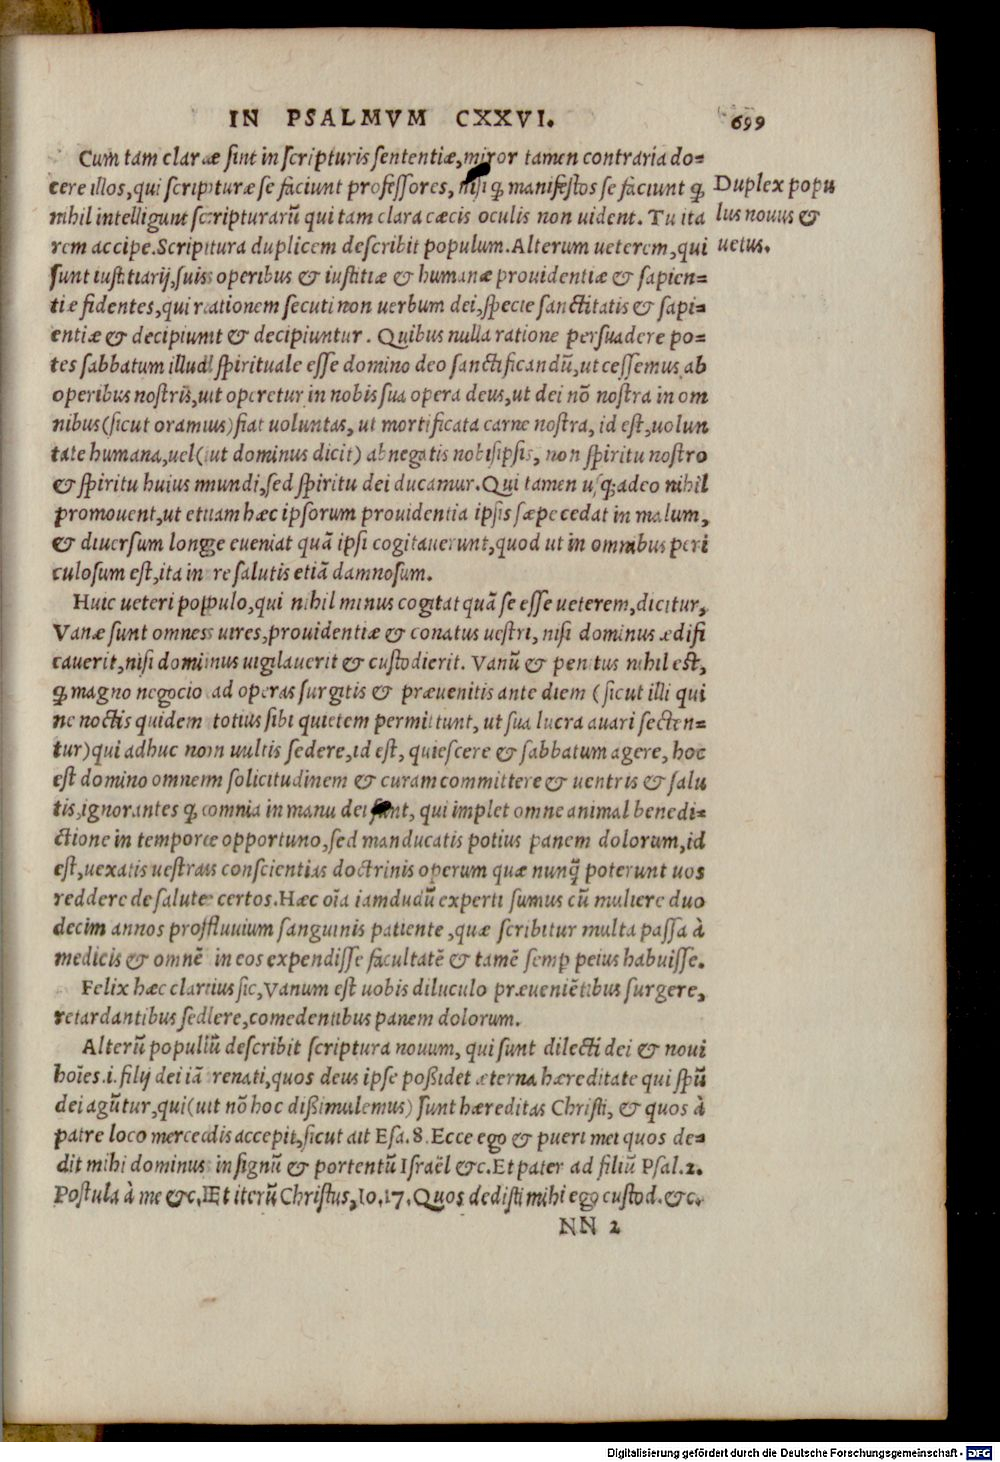 IN PSALMVM CXXVI. 699
Cum tam claræ sint in scripturis sententiæ, miror tamen contraria do=
cere illos, qui scripturæ se faciunt professores, nisi ꝙ manifestos se faciunt ꝙ
nihil intelligunt scripturarū qui tam clara cæcis oculis non uident. Tu ita
rem accipe. Scriptura duplicem describit populum. Alterum ueterem, qui
sunt iustitiarij, suis operibus & iustitiæ & humanæ prouidentiæ & sapien=
tiæ fidentes, qui rationem secuti non uerbum dei, specie sanctitatis & sapi=
entiæ & decipiunt & decipiuntur. Quibus nulla ratione persuadere po=
tes sabbatum illud spirituale esse domino deo sanctificandū, ut cessemus ab
operibus nostris, ut operetur in nobis sua opera deus, ut dei nō nostra in om
nibus (sicut oramus) fiat uoluntas, ut mortificata carne nostra, id est, uolun
tate humana, uel (ut dominus dicit) abnegatis nobisipsis, non spiritu nostro
& spiritu huius mundi, sed spiritu dei ducamur. Qui tamen usq; adeo nihil
promouent, ut etiam hæc ipsorum prouidentia ipsis sæpe cedat in malum,
& diuersum longe eueniat quā ipsi cogitauerunt, quod ut in omnibus peri
culosum est, ita in re salutis etiā damnosum.
Huic ueteri populo, qui nihil minus cogitat quā se esse ueterem, dicitur,
Vanæ sunt omnes uires, prouidentiæ & conatus uestri, nisi dominus ædifi
cauerit, nisi dominus uigilauerit & custodierit. Vanū & penitus nihil est,
ꝙ magno negocio ad operas surgitis & præuenitis ante diem (sicut illi qui
ne noctis quidem totius sibi quietem permittunt, ut sua lucra auari secten=
tur) qui adhuc non uultis sedere, id est, quiescere & sabbatum agere, hoc
est domino omnem solicitudinem & curam committere & uentris & salu
tis, ignorantes ꝙ omnia in manu dei sunt, qui implet omne animal benedi=
ctione in tempore opportuno, sed manducatis potius panem dolorum, id
est, uexatis uestras conscientias doctrinis operum quæ nunq̄ poterunt uos
reddere de salute certos. Hæc oīa iamdudū experti sumus cū muliere duo
decim annos profluuium sanguinis patiente, quæ scribitur multa passa à
medicis & omnē in eos expendisse facultatē & tamē semp peius habuisse.
Felix hæc clarius sic, Vanum est uobis diluculo præueniētibus surgere,
retardantibus sedere, comedentibus panem dolorum.
Alterū populū describit scriptura nouum, qui sunt dilecti dei & noui
hoīes .i. filij dei iā renati, quos deus ipse poßidet æterna hæreditate qui spū
dei agūtur, qui (ut nō hoc dißimulemus) sunt hæreditas Christi, & quos à
patre loco mercedis accepit, sicut ait Esa. 8. Ecce ego & pueri mei quos de=
dit mihi dominus in signū & portentū Israël &c. Et pater ad filiū Psal. 2.
Postula à me &c. Et iterū Christus, Io. 17. Quos dedisti mihi ego custod. &c.
NN 2
Duplex popu
lus nouus &
uetus.
Digitalisierung gefördert durch die Deutsche Forschungsgemeinschaft - DFG